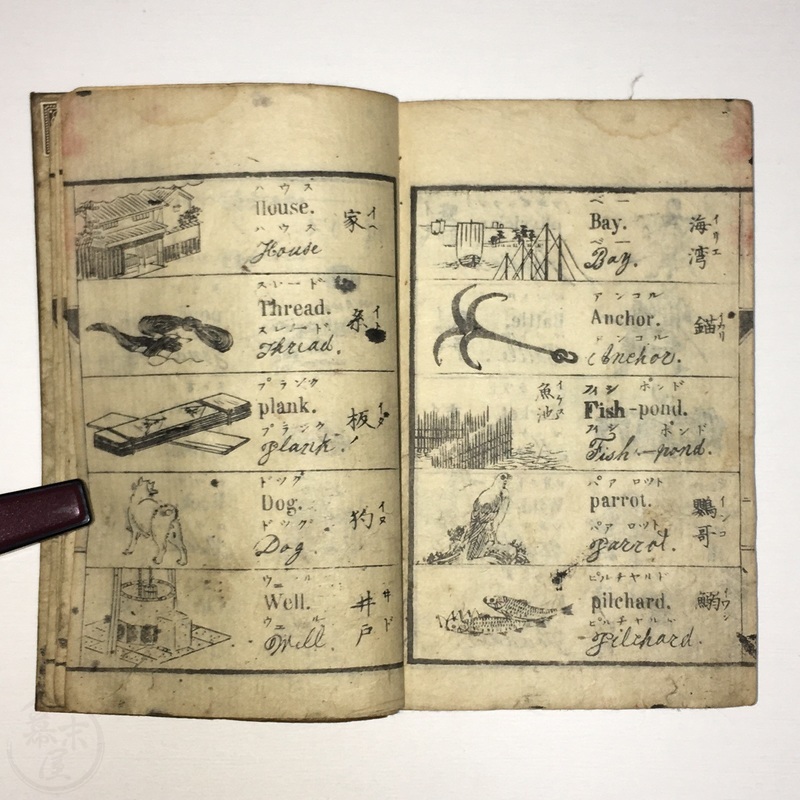 ハウス
House.
ハウス
House
家 イヘ
スレード
Thread.
スレード
Thread.
糸 イト
プランク
plank.
プランク
plank.
板 イタ
ドッグ
Dog.
ドッグ
Dog.
狗 イヌ
ウェール
Well.
ウェール
Well.
井戸 井ド
ベー
Bay.
ベー
Bay.
海湾 イリエ
アンコル
Anchor.
アンコル
Anchor.
錨 イカリ
フィシ ポンド
Fish-pond.
フィシ ポンド
Fish-pond.
魚池 イケス
パアロット
parrot.
パアロット
parrot.
鸚哥 インコ
ピルチャルド
pilchard.
ピルチャルド
pilchard.
鰯 イワシ
幕末屋